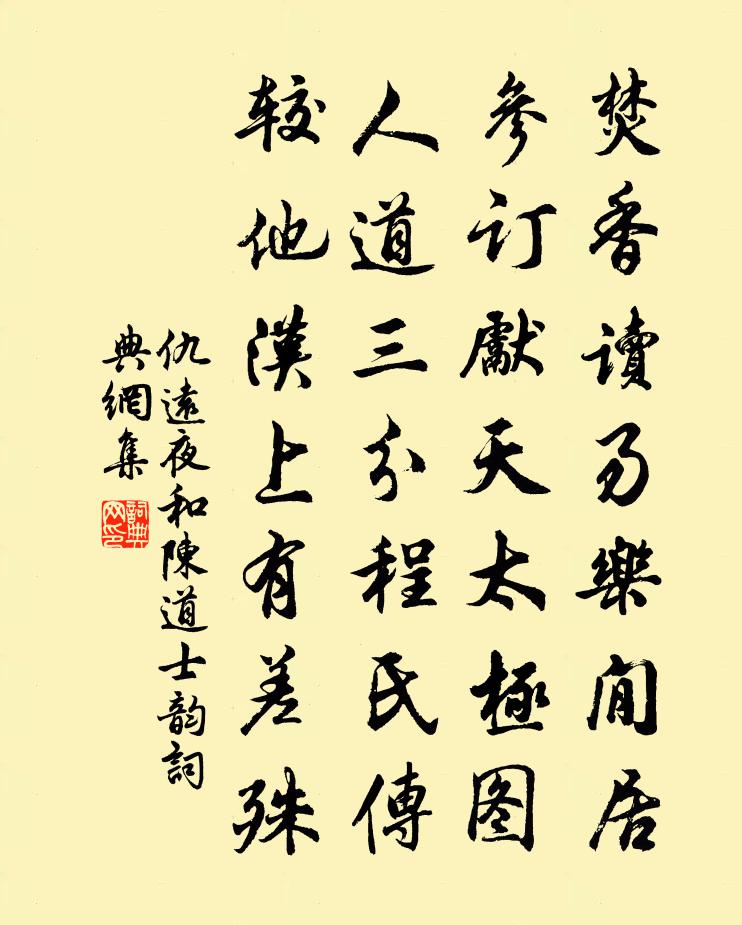 焚香讀易樂閒居
參订獻天太極图
人道三分程氏傳
较他漢上有差殊
仇遠夜和陳道士韵詞
典網集
詞典网印